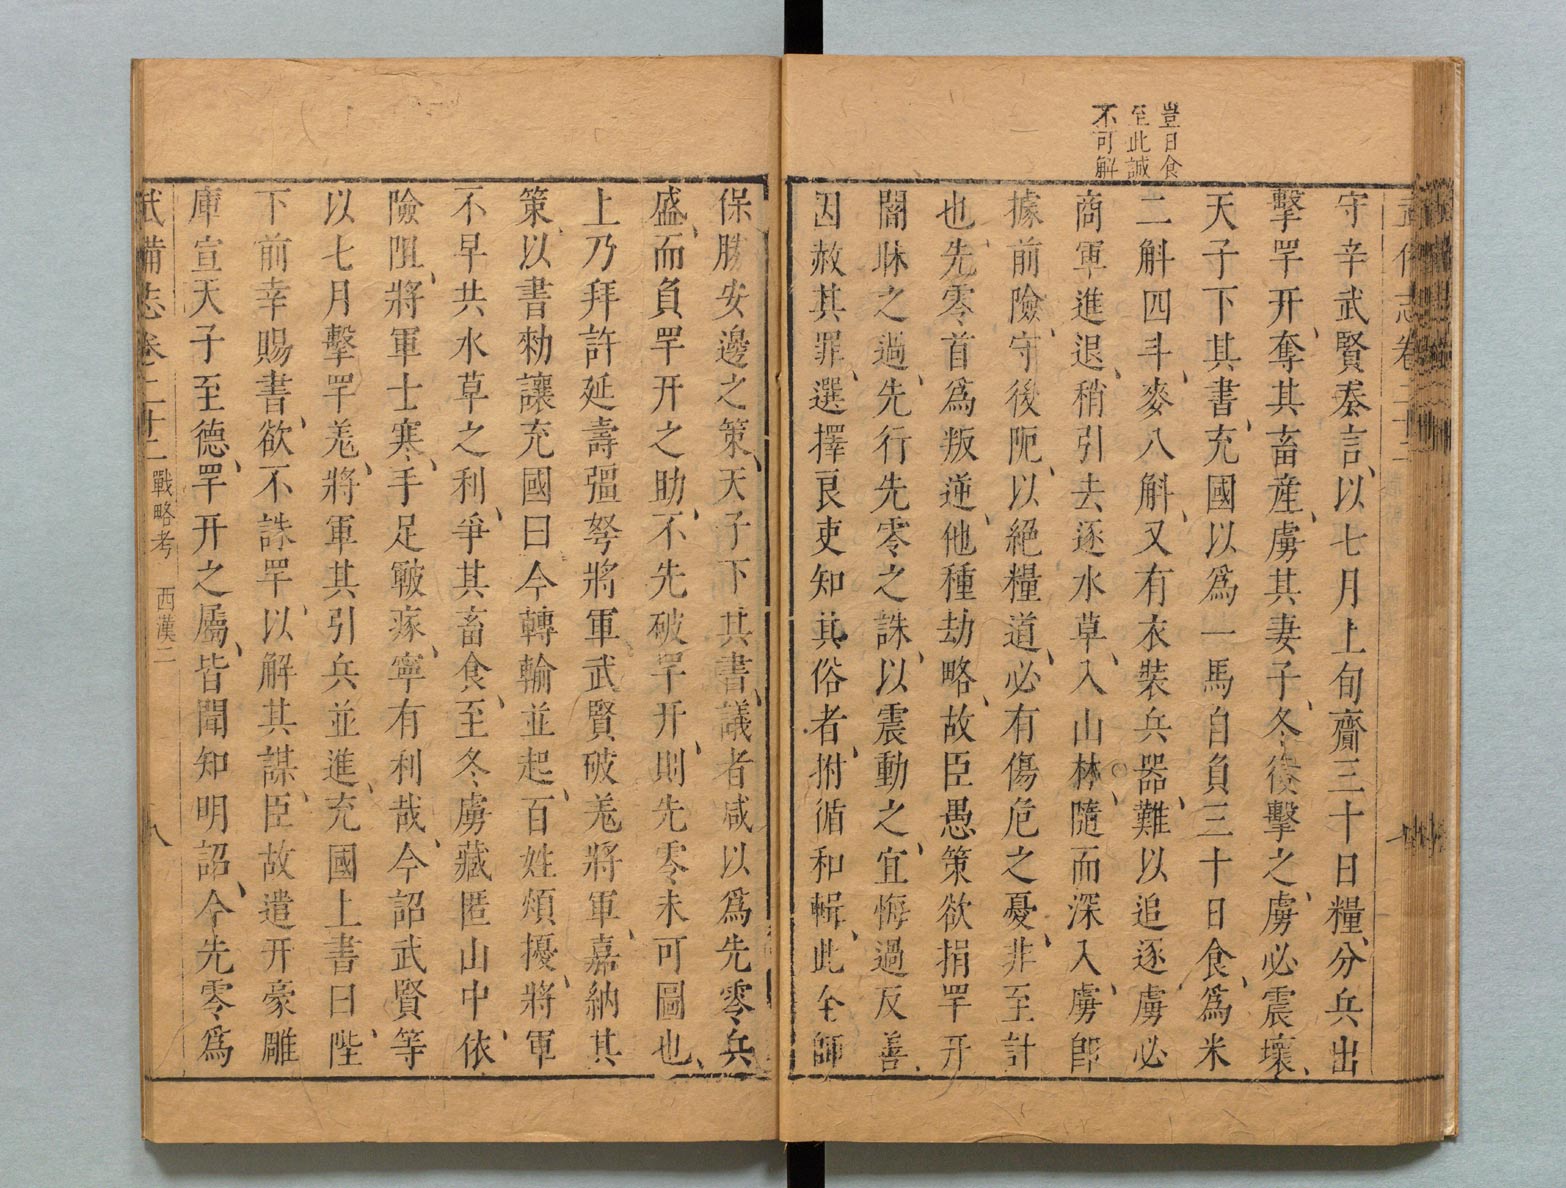 豈日食
至此誠
不可解
守辛武賢奏言、以七月上旬齎三十日糧、分兵出
擊䍐幵、奪其畜產、虜其妻子、冬復擊之、虜必震壞、
天子下其書、充國以爲一馬自負三十日食、爲米
二斛四斗、麥八斛、又有衣裝兵器、難以追逐、虜必
商軍進退、稍引去逐水草、入山林、隨而深入、虜卽
據前險、守後阨、以絕糧道、必有傷危之憂、非至計
也、先零首爲叛逆、他種劫略、故臣愚策欲捐䍐幵
闇昧之過、先行先零之誅、以震動之、宜悔過反善、
因赦其罪、選擇良吏知其俗者、拊循和輯、此全師
保勝安邊之策、天子下其書、議者咸以爲先零兵
盛、而負䍐幵之助、不先破䍐幵、則先零未可圖也、
上乃拜許延壽彊弩將軍武賢破羌將軍、嘉納其
策、以書勑讓充國曰今轉輸並起、百姓煩擾、將軍
不早共水草之利、爭其畜食、至冬虜藏匿山中、依
險阻、將軍士寒、手足皸瘃、寧有利哉、今詔武賢等
以七月擊䍐羌、將軍其引兵並進、充國上書曰陛
下前幸賜書、欲不誅䍐、以解其謀、臣故遣幵豪雕
庫宣天子至德、䍐幵之屬、皆聞知明詔、今先零爲
武備志卷二十二 戰略考 西漢二 八